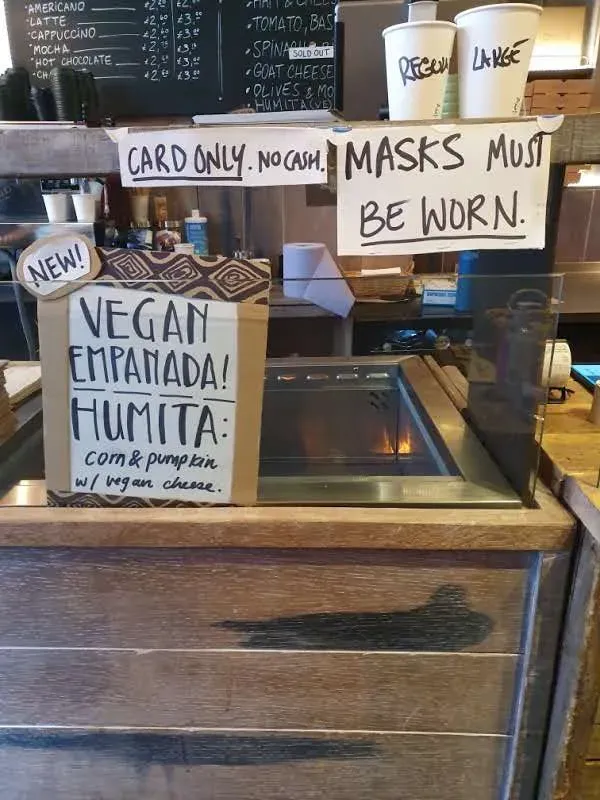 • AMERICANO
• LATTE
• CAPPUCCINO
• MOCHA
• HOT CHOCOLATE
• TOMATO, BAS
SOLD OUT
• GOAT CHEESE
• OLIVES & MO
HUMITA (VE)
REGU
LARGE
CARD ONLY. NO CASH.
MASKS MUST
BE WORN.
NEW!
VEGAN
EMPANADA!
HUMITA:
corn & pumpkin
w/ vegan cheese.